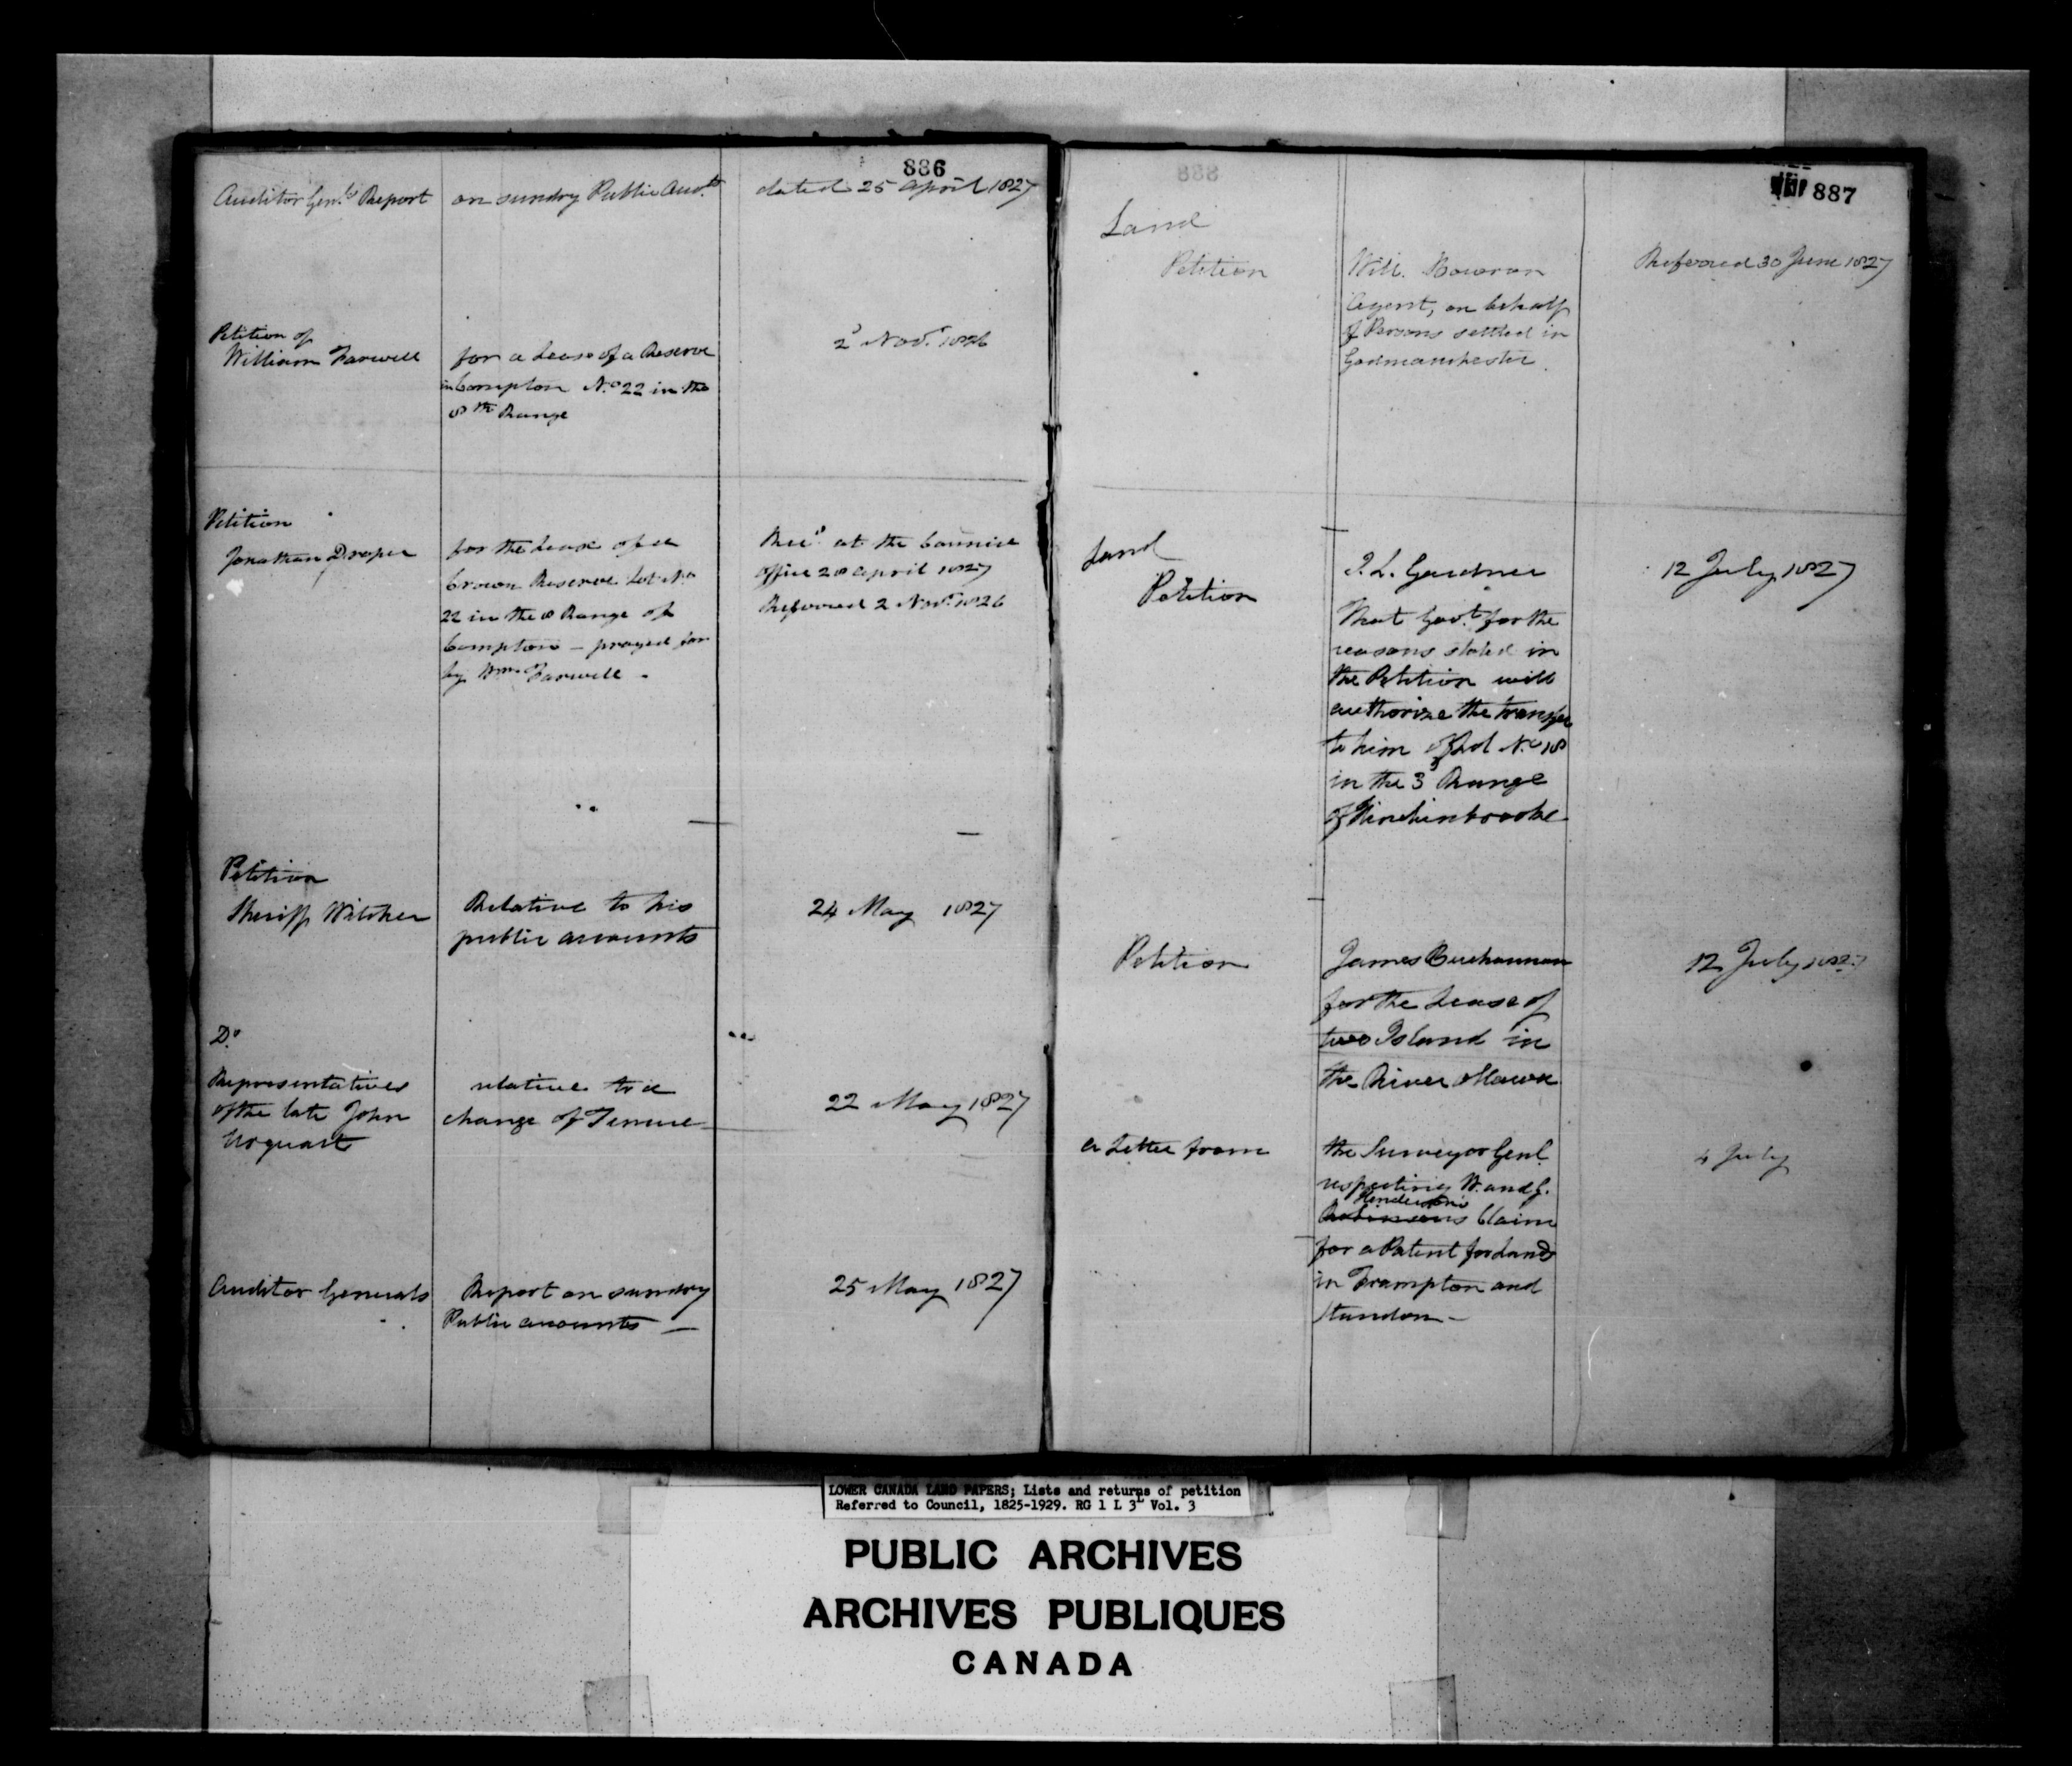 886
Auditor Gen.ls Report on sundry Public Acc.ts dated 25 April 1827
Petition of
William Farwell for a Lease of a Reserve 2d Novr. 1826
in Compton No. 22 in the
8th Range
Petition
Jonathan Draper for the Lease of a Recd. at the Council
Crown Reserve Lot No. office 28 April 1827
22 in the 8 Range of Referred 2 Novr. 1826
Compton — prayed for
by Wm. Farwell -
Petition
Sheriff Whitcher Relative to his 24 May 1827
public accounts
Do.
Representatives relative to a
of the late John change of Tenure 22 May 1827
Urquart
Auditor Generals Report on sundry 25 May 1827
Public accounts —
887
Land
Petition Will. Bowron Referred 30 June 1827
Agent, on behalf
of Persons settled in
Godmanchester.
Land
Petition Gardner 12 July 1827
That Govt. for the
reasons stated in
the Petition will
authorize the transfer
to him of Lot No. 18
in the 3d Range
of Hinchinbrooke
Petition James Buchannan 12 July 1827
for the Lease of
two Island in
the River Ottawa
a Letter from the Surveyor Genl. 4 July
respecting W. and G.
Henderson's
Robinsons Claim
for a Patent for Lands
in Frampton and
Standon -
LOWER CANADA LAND PAPERS; Lists and returns of petition
Referred to Council, 1825-1929. RG 1 L 3L Vol. 3
PUBLIC ARCHIVES
ARCHIVES PUBLIQUES
CANADA